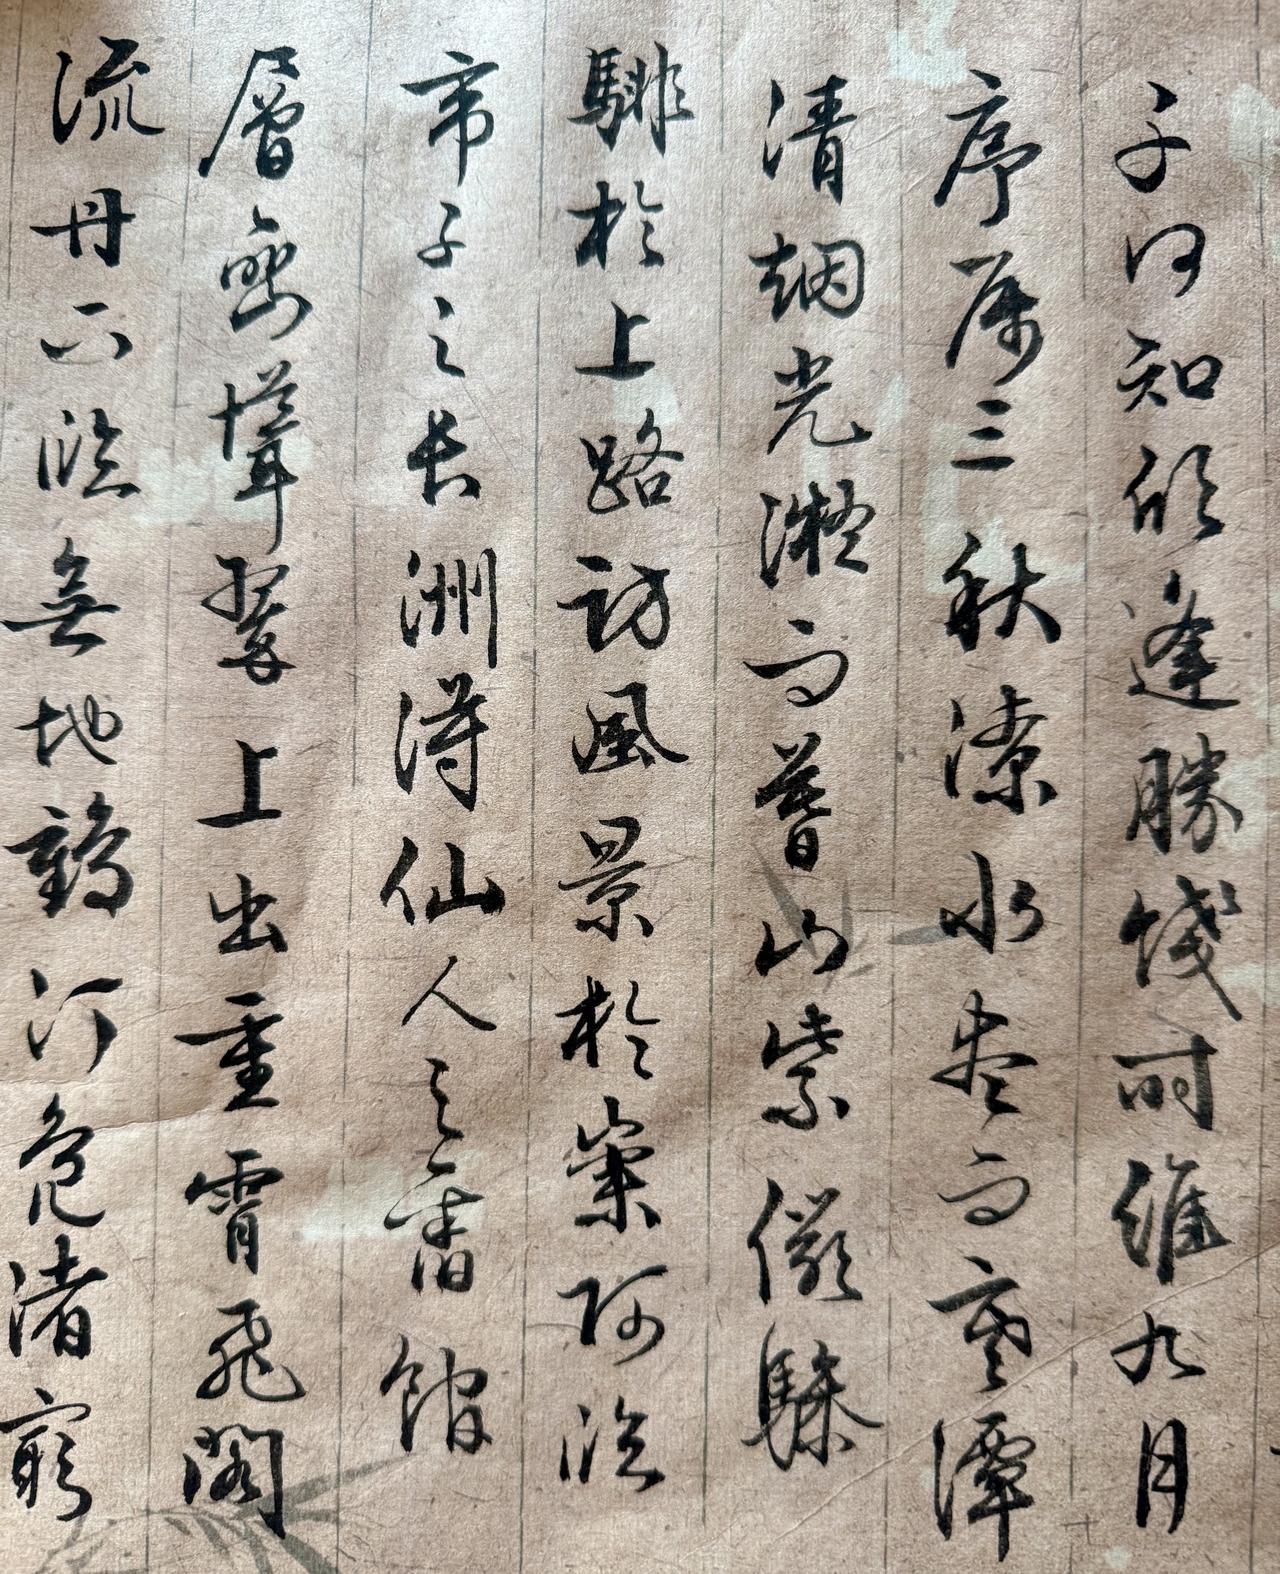 子何知躬逢勝餞时維九月
序属三秋潦水盡而寒潭
清烟光凝而暮山紫儼驂
騑於上路訪風景於崇阿臨
帝子之長洲得仙人之舊館
層巒聳翠上出重霄飛閣
流丹下臨無地鶴汀鳧渚窮